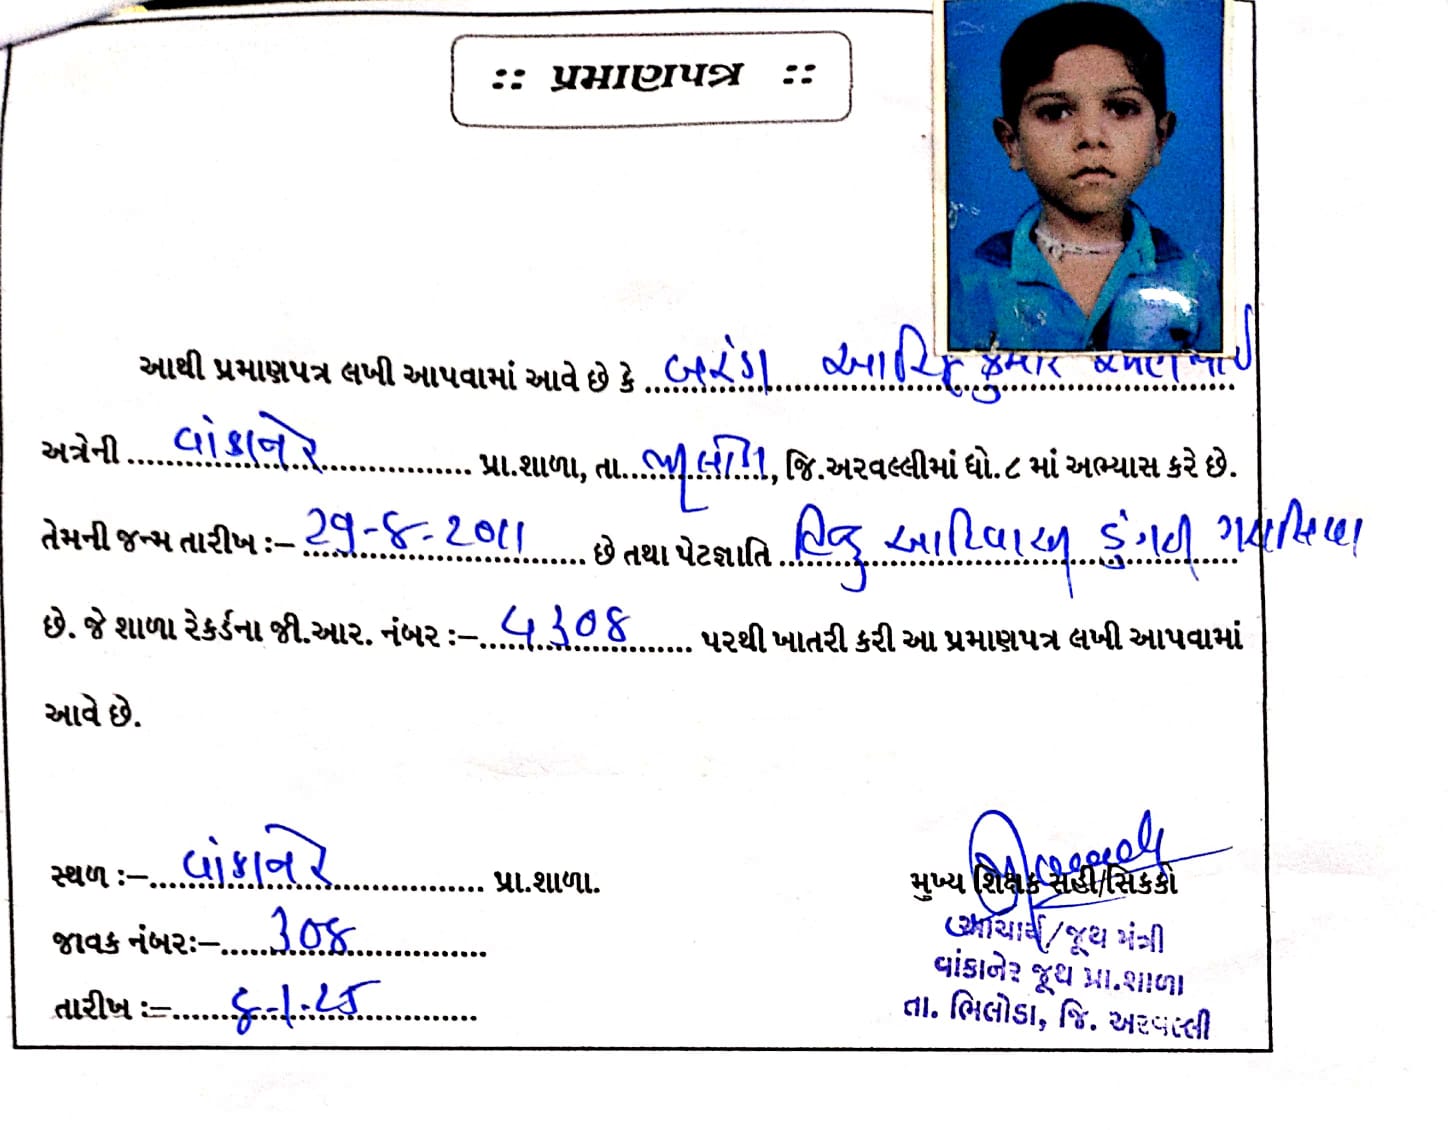 :: પ્રમાણપત્ર ::
આથી પ્રમાણપત્ર લખી આપવામાં આવે છે કે બરંડા કુમાર
અત્રેની વાંકાનેર પ્રા.શાળા, તા. જિ.અરવલ્લીમાં ધો.૮ માં અભ્યાસ કરે છે.
તેમની જન્મ તારીખ :- 29-૪-2011 છે તથા પેટજ્ઞાતિ હિન્દુ આદિવાસી ડુંગરી ગરાસિયા
છે. જે શાળા રેકર્ડના જી.આર. નંબર :- ૫૩૦૪ પરથી ખાતરી કરી આ પ્રમાણપત્ર લખી આપવામાં
આવે છે.
સ્થળ :- વાંકાનેર પ્રા.શાળા.
મુખ્ય શિક્ષક સહી/સિક્કો
જાવક નંબર:- ૩૦૪
આચાર્ય/જૂથ મંત્રી
વાંકાનેર જૂથ પ્રા.શાળા
તારીખ :-
તા. ભિલોડા, જિ. અરવલ્લી